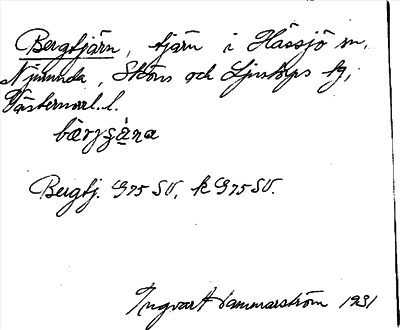 Bergtjärn, tjärn i Hässjö sn,
Njurunda, Sköns och Ljustorps tg,
Västernorrl. l.
bærgɡä̀na
Bergtj. G75 SV, k G75 SV.
Ingvar Hammarström 1931